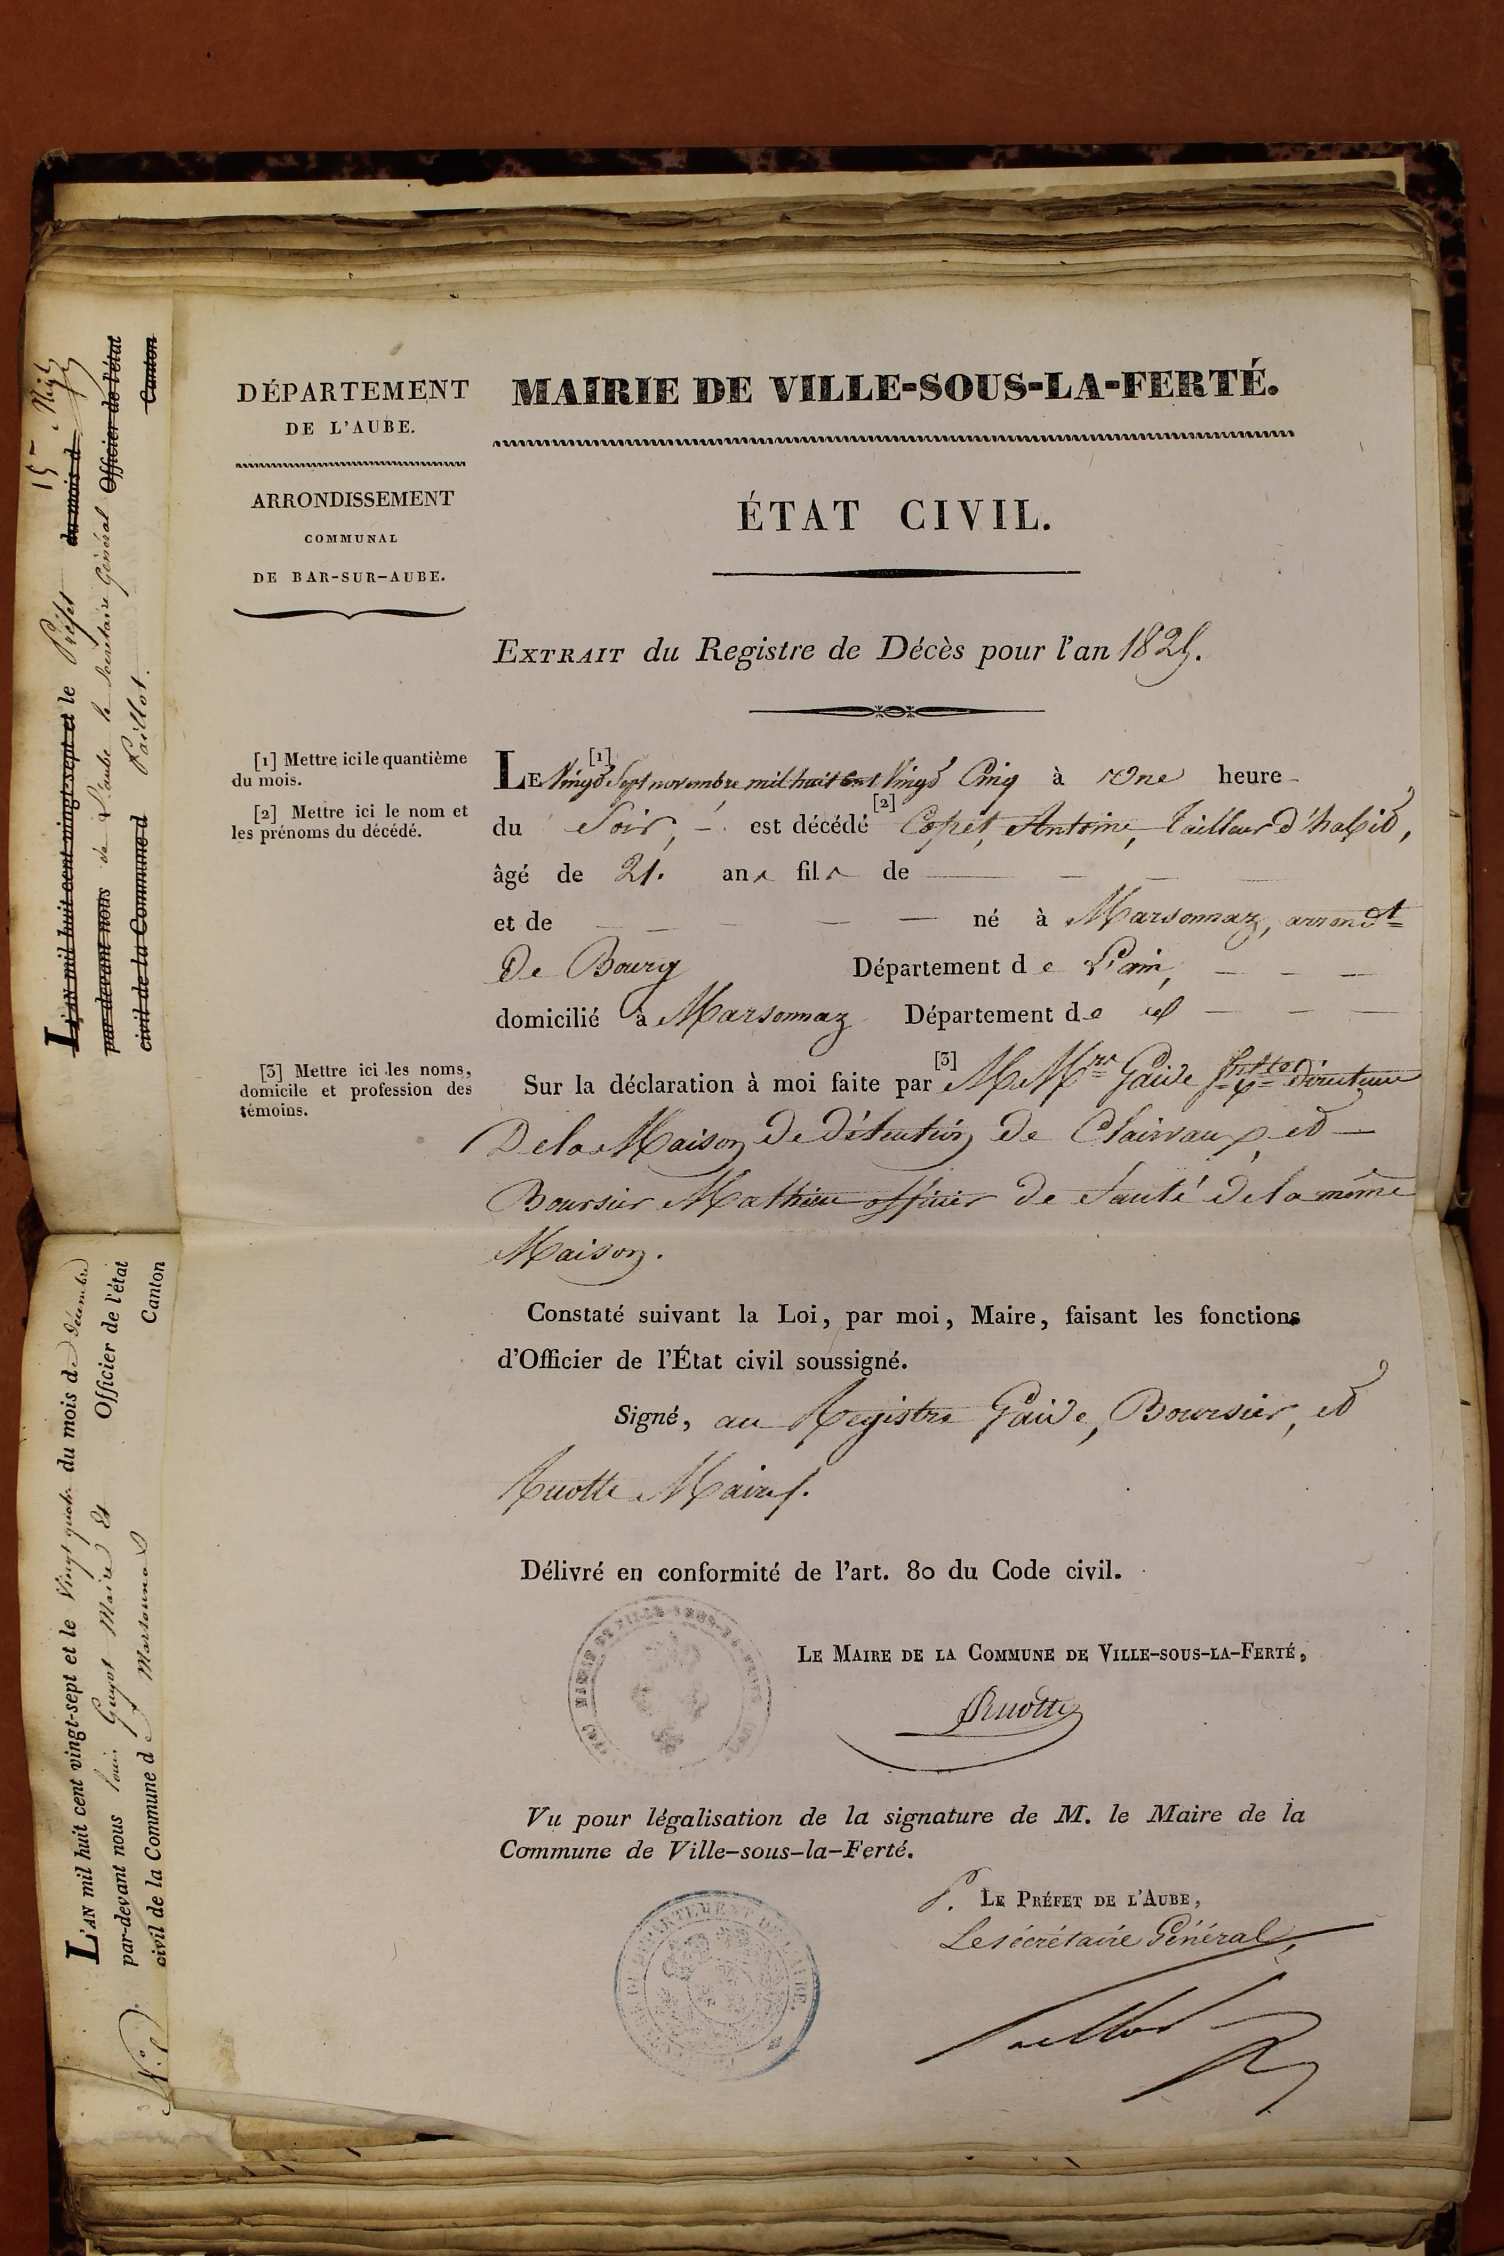 DÉPARTEMENT
DE L'AUBE.
ARRONDISSEMENT
COMMUNAL
DE BAR-SUR-AUBE.
MAIRIE DE VILLE-SOUS-LA-FERTÉ.
ÉTAT CIVIL.
EXTRAIT du Registre de Décès pour l'an 1825.
[1] Mettre ici le quantième
du mois.
[2] Mettre ici le nom et
les prénoms du décédé.
[3] Mettre ici les noms,
domicile et profession des
témoins.
LE [1] Vingt Sept novembre mil huit cent Vingt Cinq à une heure
du Soir, est décédé [2] Copet, Antoine, tailleur d'habit,
âgé de 21. ans fils de
et de né à Marsonnaz, arrondt
De Bourg Département de l'ain,
domicilié à Marsonnaz Département de id
Sur la déclaration à moi faite par [3] M. Mrs Gaide directeur
De la Maison de détention de Clairvaux, et
Boursier Mathieu officier de Santé de la même
Maison.
Constaté suivant la Loi, par moi, Maire, faisant les fonctions
d'Officier de l'État civil soussigné.
Signé, au Registre Gaide, Boursier, et
Ruotte Maire.
Délivré en conformité de l'art. 80 du Code civil.
LE MAIRE DE LA COMMUNE DE VILLE-SOUS-LA-FERTÉ,
Ruotte
Vu pour légalisation de la signature de M. le Maire de la
Commune de Ville-sous-la-Ferté.
P. LE PRÉFET DE L'AUBE,
Le secrétaire Général,
Paillot
L'AN mil huit cent vingt-sept et le Préfet du mois d
par-devant nous de L'aube le Secrétaire Général Officier de l'état
civil de la Commune d Paillot. Canton
L'AN mil huit cent vingt-sept et le Vingt quatre du mois de décembre
par-devant nous Louis Guyot Maire et Officier de l'état
civil de la Commune de Marsonnas Canton